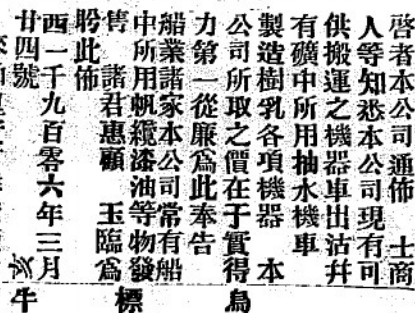 啓者本公司通佈　士商
人等知悉本公司現有可
供搬運之機器車出沽幷
有礦中所用抽水機車
製造樹乳各項機器　本
公司所取之價在于實得
力第一從廉爲此奉告
船業諸家本公司常有船
中所用帆纜漆油等物發
售　諸君惠顧　玉臨爲
盼此佈
西一千九百零六年三月
廿四號
鳥
標
牛